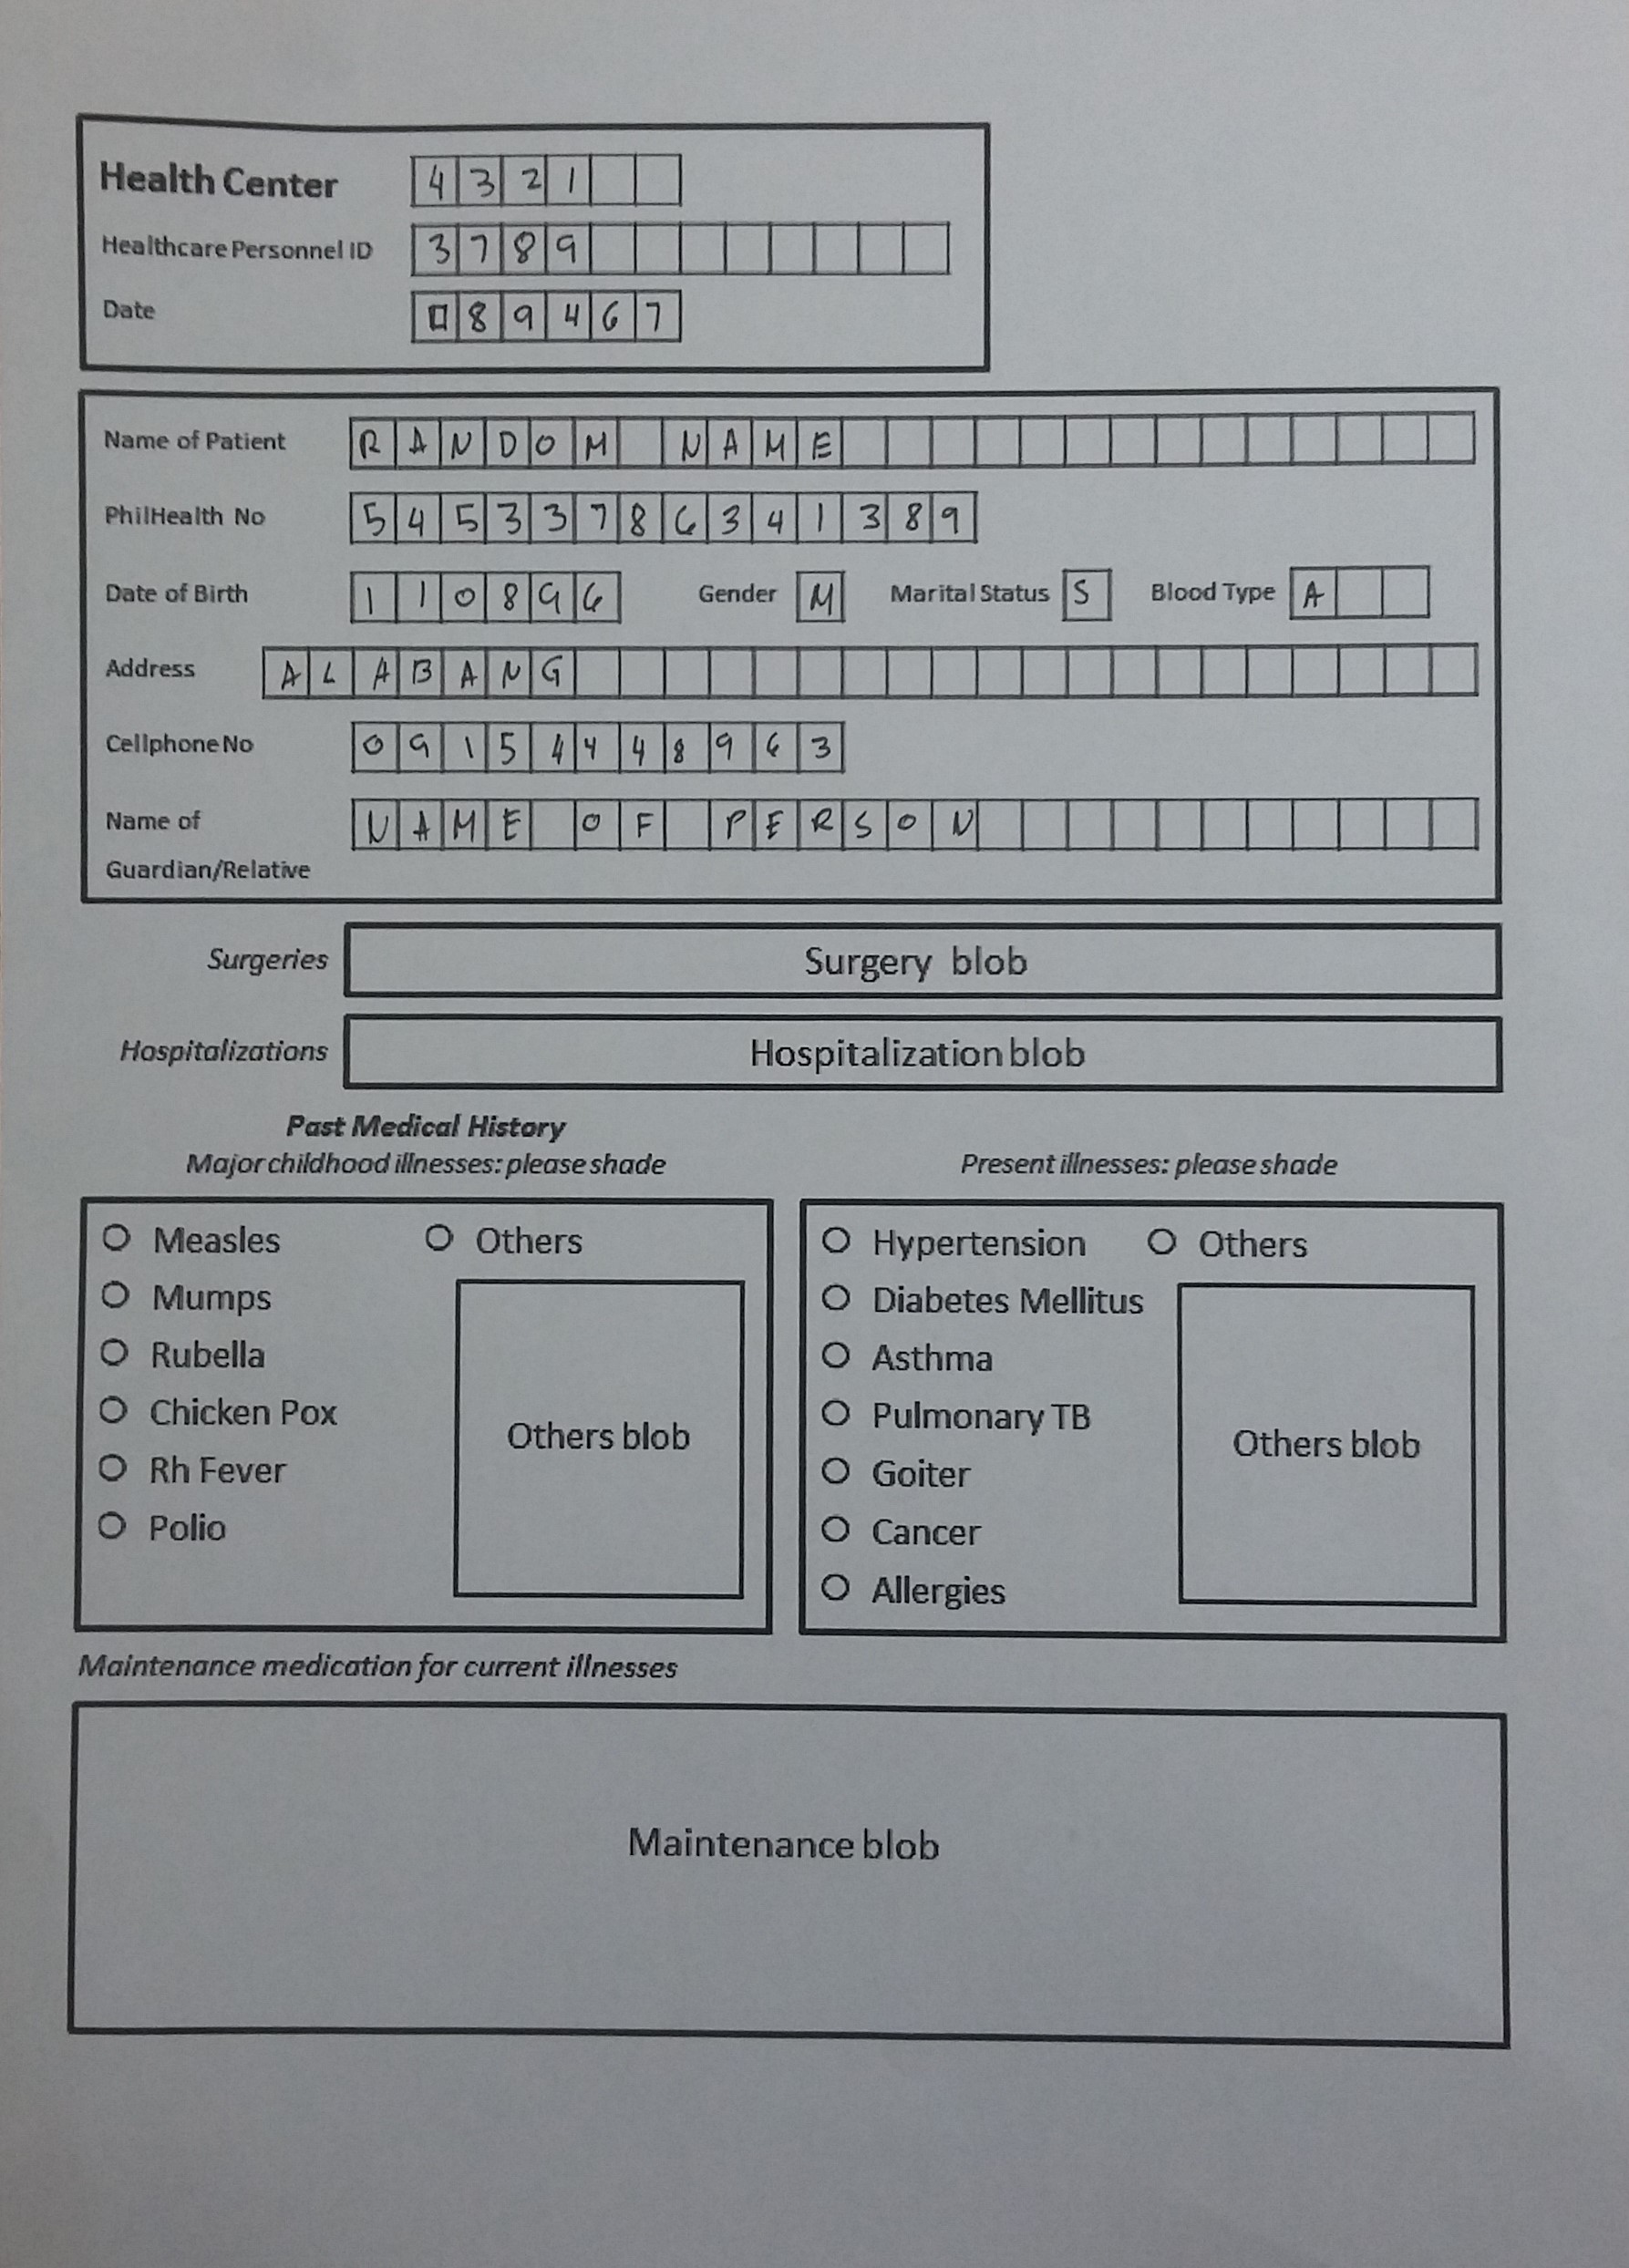 Health Center 4321
Healthcare Personnel ID 3789
Date 89467
Name of Patient RANDOM NAME
PhilHealth No 54533786341389
Date of Birth 110896 Gender M Marital Status S Blood Type A
Address ALABANG
Cellphone No 09154448963
Name of NAME OF PERSON
Guardian/Relative
Surgeries Surgery blob
Hospitalizations Hospitalization blob
Past Medical History
Major childhood illnesses: please shade
Measles Others
Mumps
Rubella
Chicken Pox
Rh Fever
Polio
Others blob
Present illnesses: please shade
Hypertension Others
Diabetes Mellitus
Asthma
Pulmonary TB
Goiter
Cancer
Allergies
Others blob
Maintenance medication for current illnesses
Maintenance blob